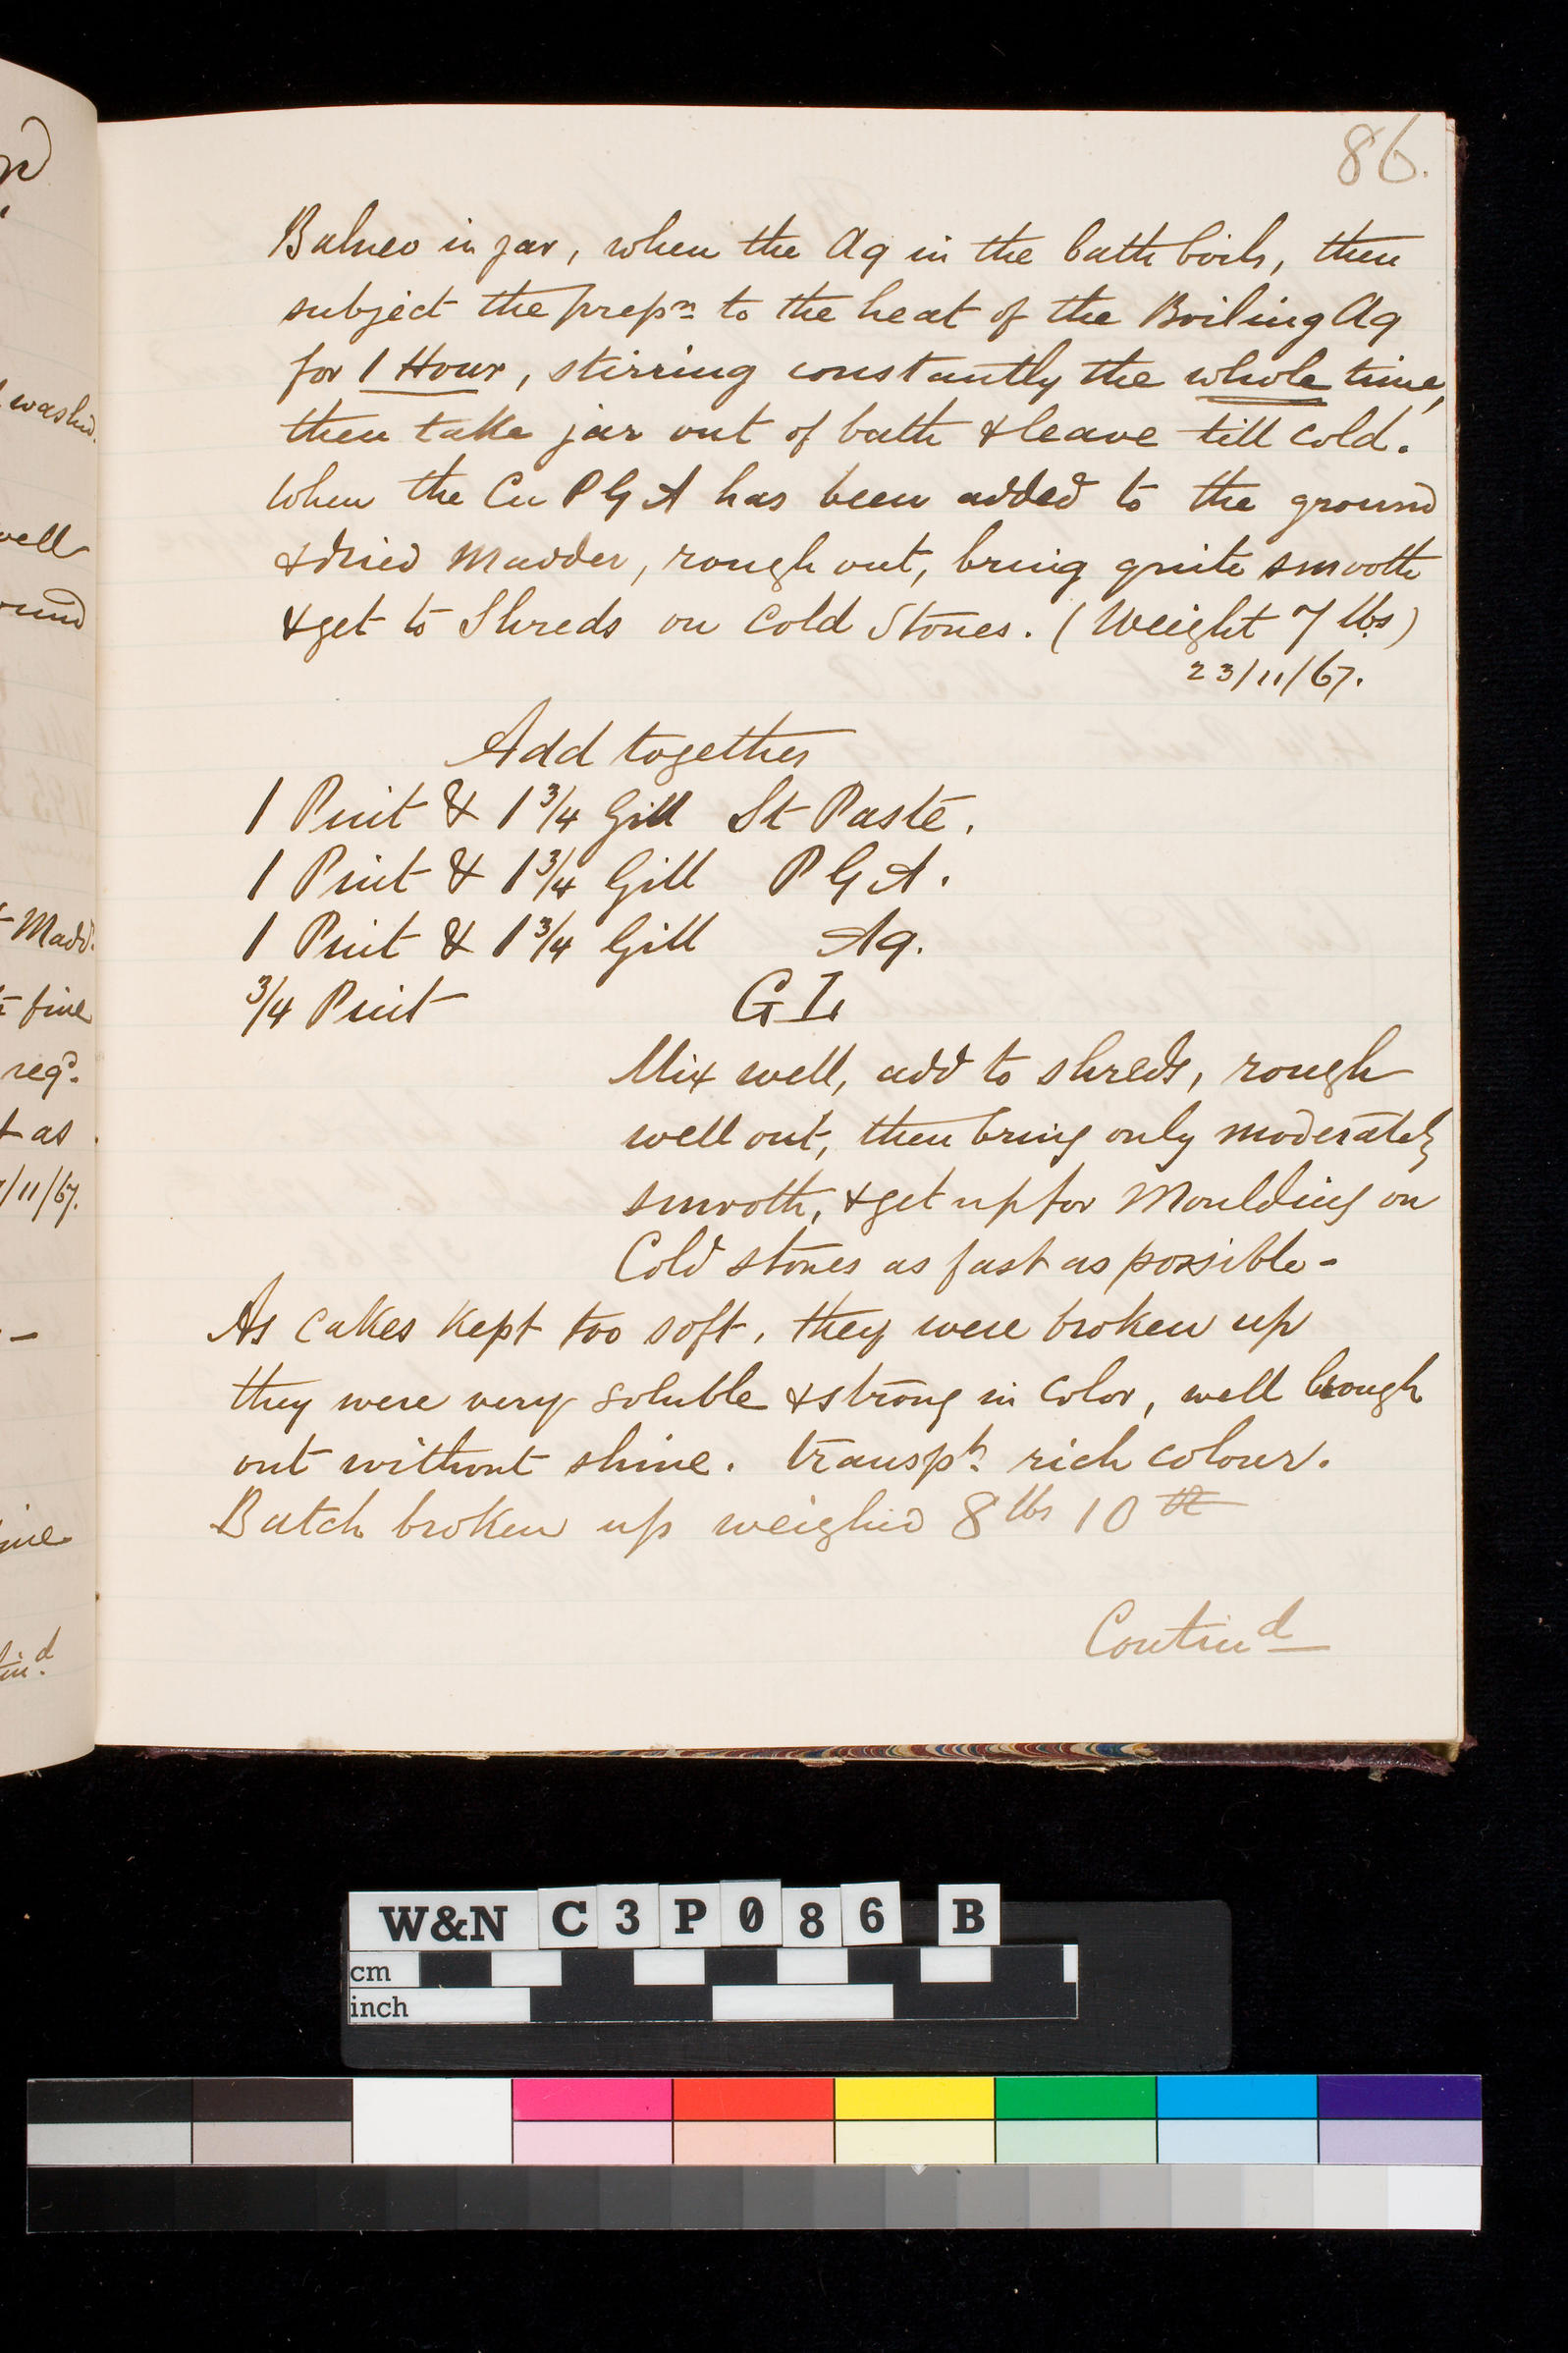 86.
Balneo in jar, when the Aq in the bath boils, then
subject the prepn to the heat of the Boiling Aq
for 1 Hour, stirring constantly the whole time,
then take jar out of bath & leave till cold.
When the Cu P G A has been added to the ground
& dried Madder, rough out, bring quite smooth
& get to Shreds on Cold Stones. (Weight 7 lbs)
23/11/67.
Add together
1 Pint & 1 3/4 Gill St Paste.
1 Pint & 1 3/4 Gill P G A.
1 Pint & 1 3/4 Gill Aq.
3/4 Pint G L
Mix well, add to shreds, rough
well out, then bring only moderately
smooth, & get up for Moulding on
Cold stones as fast as possible -
As Cakes Kept too soft, they were broken up
they were very soluble & strong in Color, well
out without shine. transpt. rich colour.
Batch broken up weighed 8 lbs 10
Contind
washed.
well
Madd.
fine
reqd.
t as
/11/67.
W&N C 3 P 0 8 6 B
cm
inch